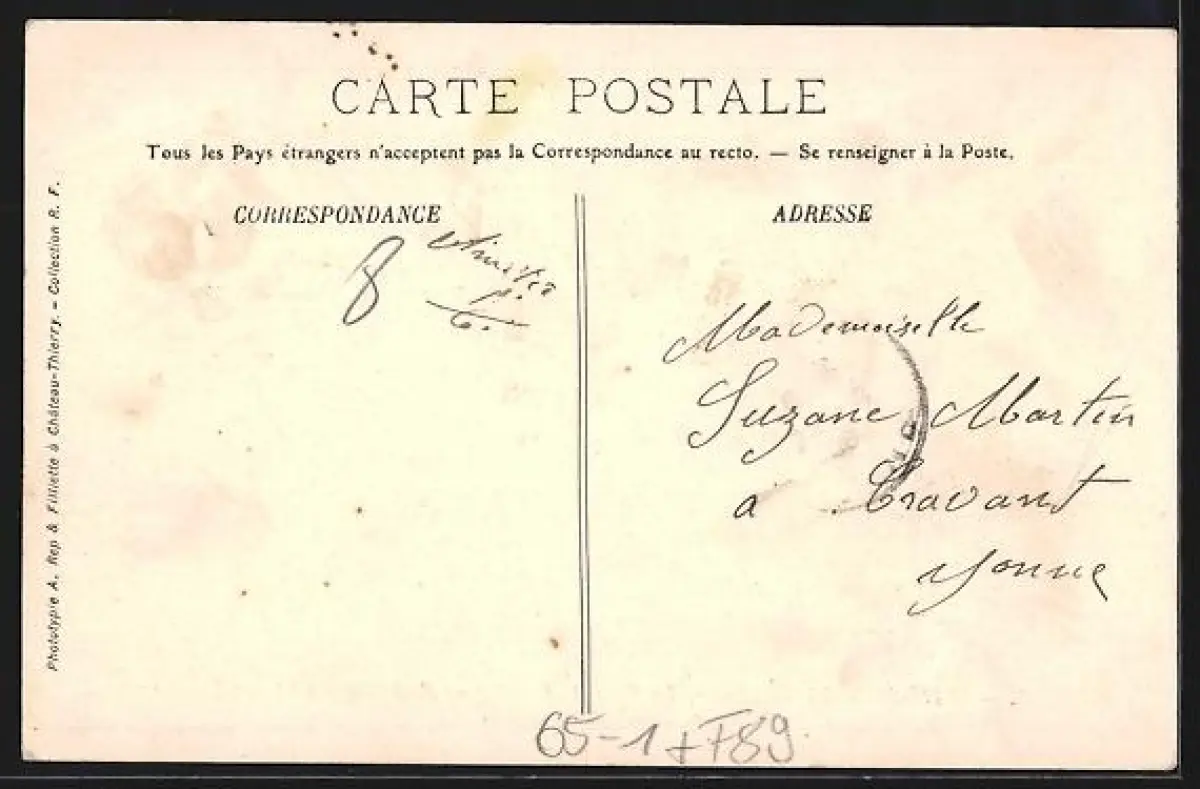 CARTE POSTALE
Tous les Pays étrangers n'acceptent pas la Correspondance au recto. — Se renseigner à la Poste.
CORRESPONDANCE
ADRESSE
8
Amitié
Mademoiselle
Suzane Martin
à Cravant
Yonne
65-1 + F89
Phototypie A. Rep & Filliette à Château-Thierry. - Collection R. F.